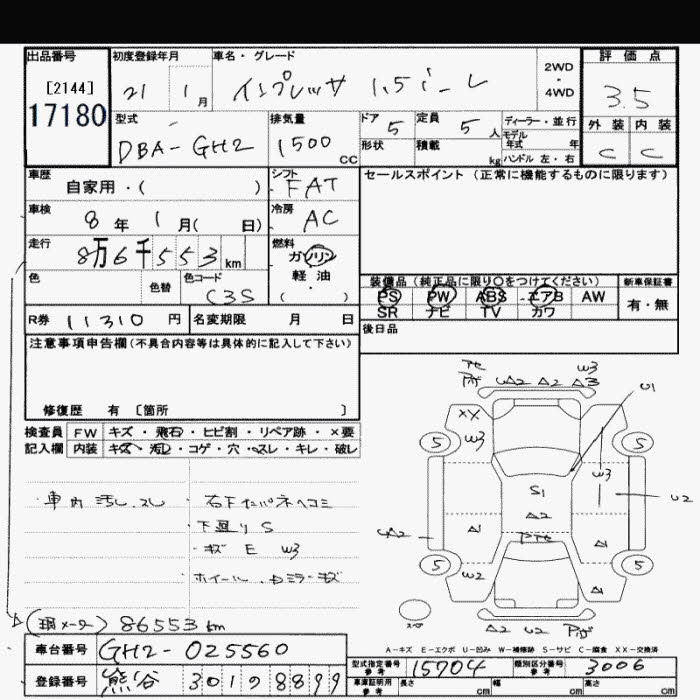 出品番号 初度登録年月 車名・グレード 2WD・4WD 評価点
[2144] 21 1月 インプレッサ 1.5i-L 3.5
17180 型式 排気量 ドア 定員 ディーラー・並行 外装 内装
DBA-GH2 1500 CC 5 5人 モデル年式 年 C C
形状 積載 kg ハンドル 左・右
車歴 シフト セールスポイント(正常に機能するものに限ります)
自家用・( ) FAT
車検 冷房
8年 1月( 日) AC
走行 燃料
8万6千553km ガソリン
色 色替 色コード 軽油
C3S (・) 装備品(純正品に限り○をつけてください) 新車保証書
PS PW ABS エアB AW 有・無
R券 11310円 名変期限 月 日 SR ナビ TV カワ
注意事項申告欄(不具合内容等は具体的に記入して下さい) 後日品
修復歴 有 〔箇所 〕
検査員 FW キズ・飛石・ヒビ割・リペア跡・×要
記入欄 内装 キズ・汚レ・コゲ・穴・スレ・キレ・破レ
W3
A2 A2 A3
U1
XX
W3
5 5
W3
S1
A2
U2
A2
A1 A1
5 W2 A1 5
A2 U2
・車内 汚レ、スレ ・右下たパネヘコミ
・下廻り S
・キズ E W3
・ホイール、ドアミラーキズ
(現メーター) 86553km
A-キズ E-エクボ U-凹み W-補修跡 S-サビ C-腐食 XX-交換済
車台番号 GH2-025560
型式指定番号 参考 15704 類別区分番号 参考 3006
登録番号 熊谷 301 す 8899
車庫証明用 参考 長さ cm 幅 cm 高さ cm